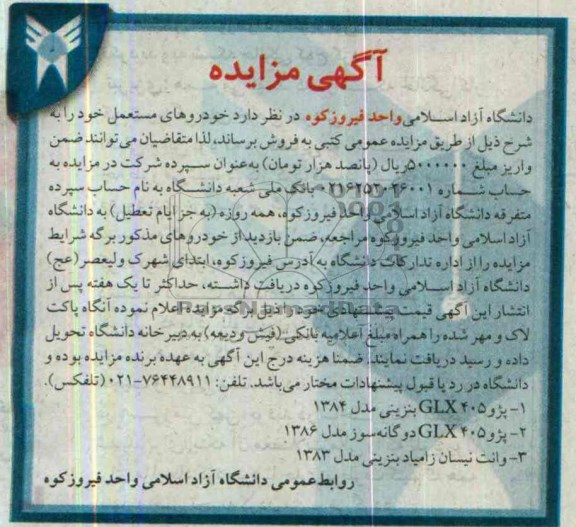 آگهی مزایده
دانشگاه آزاد اسلامی واحد فیروزکوه در نظر دارد خودروهای مستعمل خود را به
شرح ذیل از طریق مزایده عمومی کتبی به فروش برساند، لذا متقاضیان می توانند ضمن
واریز مبلغ ۵۰۰۰۰۰۰ ریال (پانصد هزار تومان) به‌عنوان سپرده شرکت در مزایده به
حساب شماره ۰۲۱۶۲۵۲۰۲۶۰۰۱ بانک ملی شعبه دانشگاه به نام حساب سپرده
متفرقه دانشگاه آزاد اسلامی واحد فیروزکوه، همه روزه (به جز ایام تعطیل) به دانشگاه
آزاد اسلامی واحد فیروزکوه مراجعه، ضمن بازدید از خودروهای مذکور برگه شرایط
مزایده را از اداره تدارکات دانشگاه به آدرس فیروزکوه، ابتدای شهرک ولیعصر (عج)
دانشگاه آزاد اسلامی واحد فیروزکوه دریافت داشته، حداکثر تا یک هفته پس از
انتشار این آگهی قیمت پیشنهادی خود را ذیل برگه مزایده اعلام نموده آنگاه پاکت
لاک و مهر شده را همراه مبلغ اعلامیه بانکی (فیش ودیعه) به دبیرخانه دانشگاه تحویل
داده و رسید دریافت نمایند. ضمنا هزینه درج این آگهی به عهده برنده مزایده بوده و
دانشگاه در رد یا قبول پیشنهادات مختار می‌باشد. تلفن: ۷۶۴۴۸۹۱۱-۰۲۱ (تلفکس).
۱- پژو ۴۰۵ GLX بنزینی مدل ۱۳۸۴
۲- پژو ۴۰۵ GLX دوگانه‌سوز مدل ۱۳۸۶
۳- وانت نیسان زامیاد بنزینی مدل ۱۳۸۳
روابط عمومی دانشگاه آزاد اسلامی واحد فیروزکوه